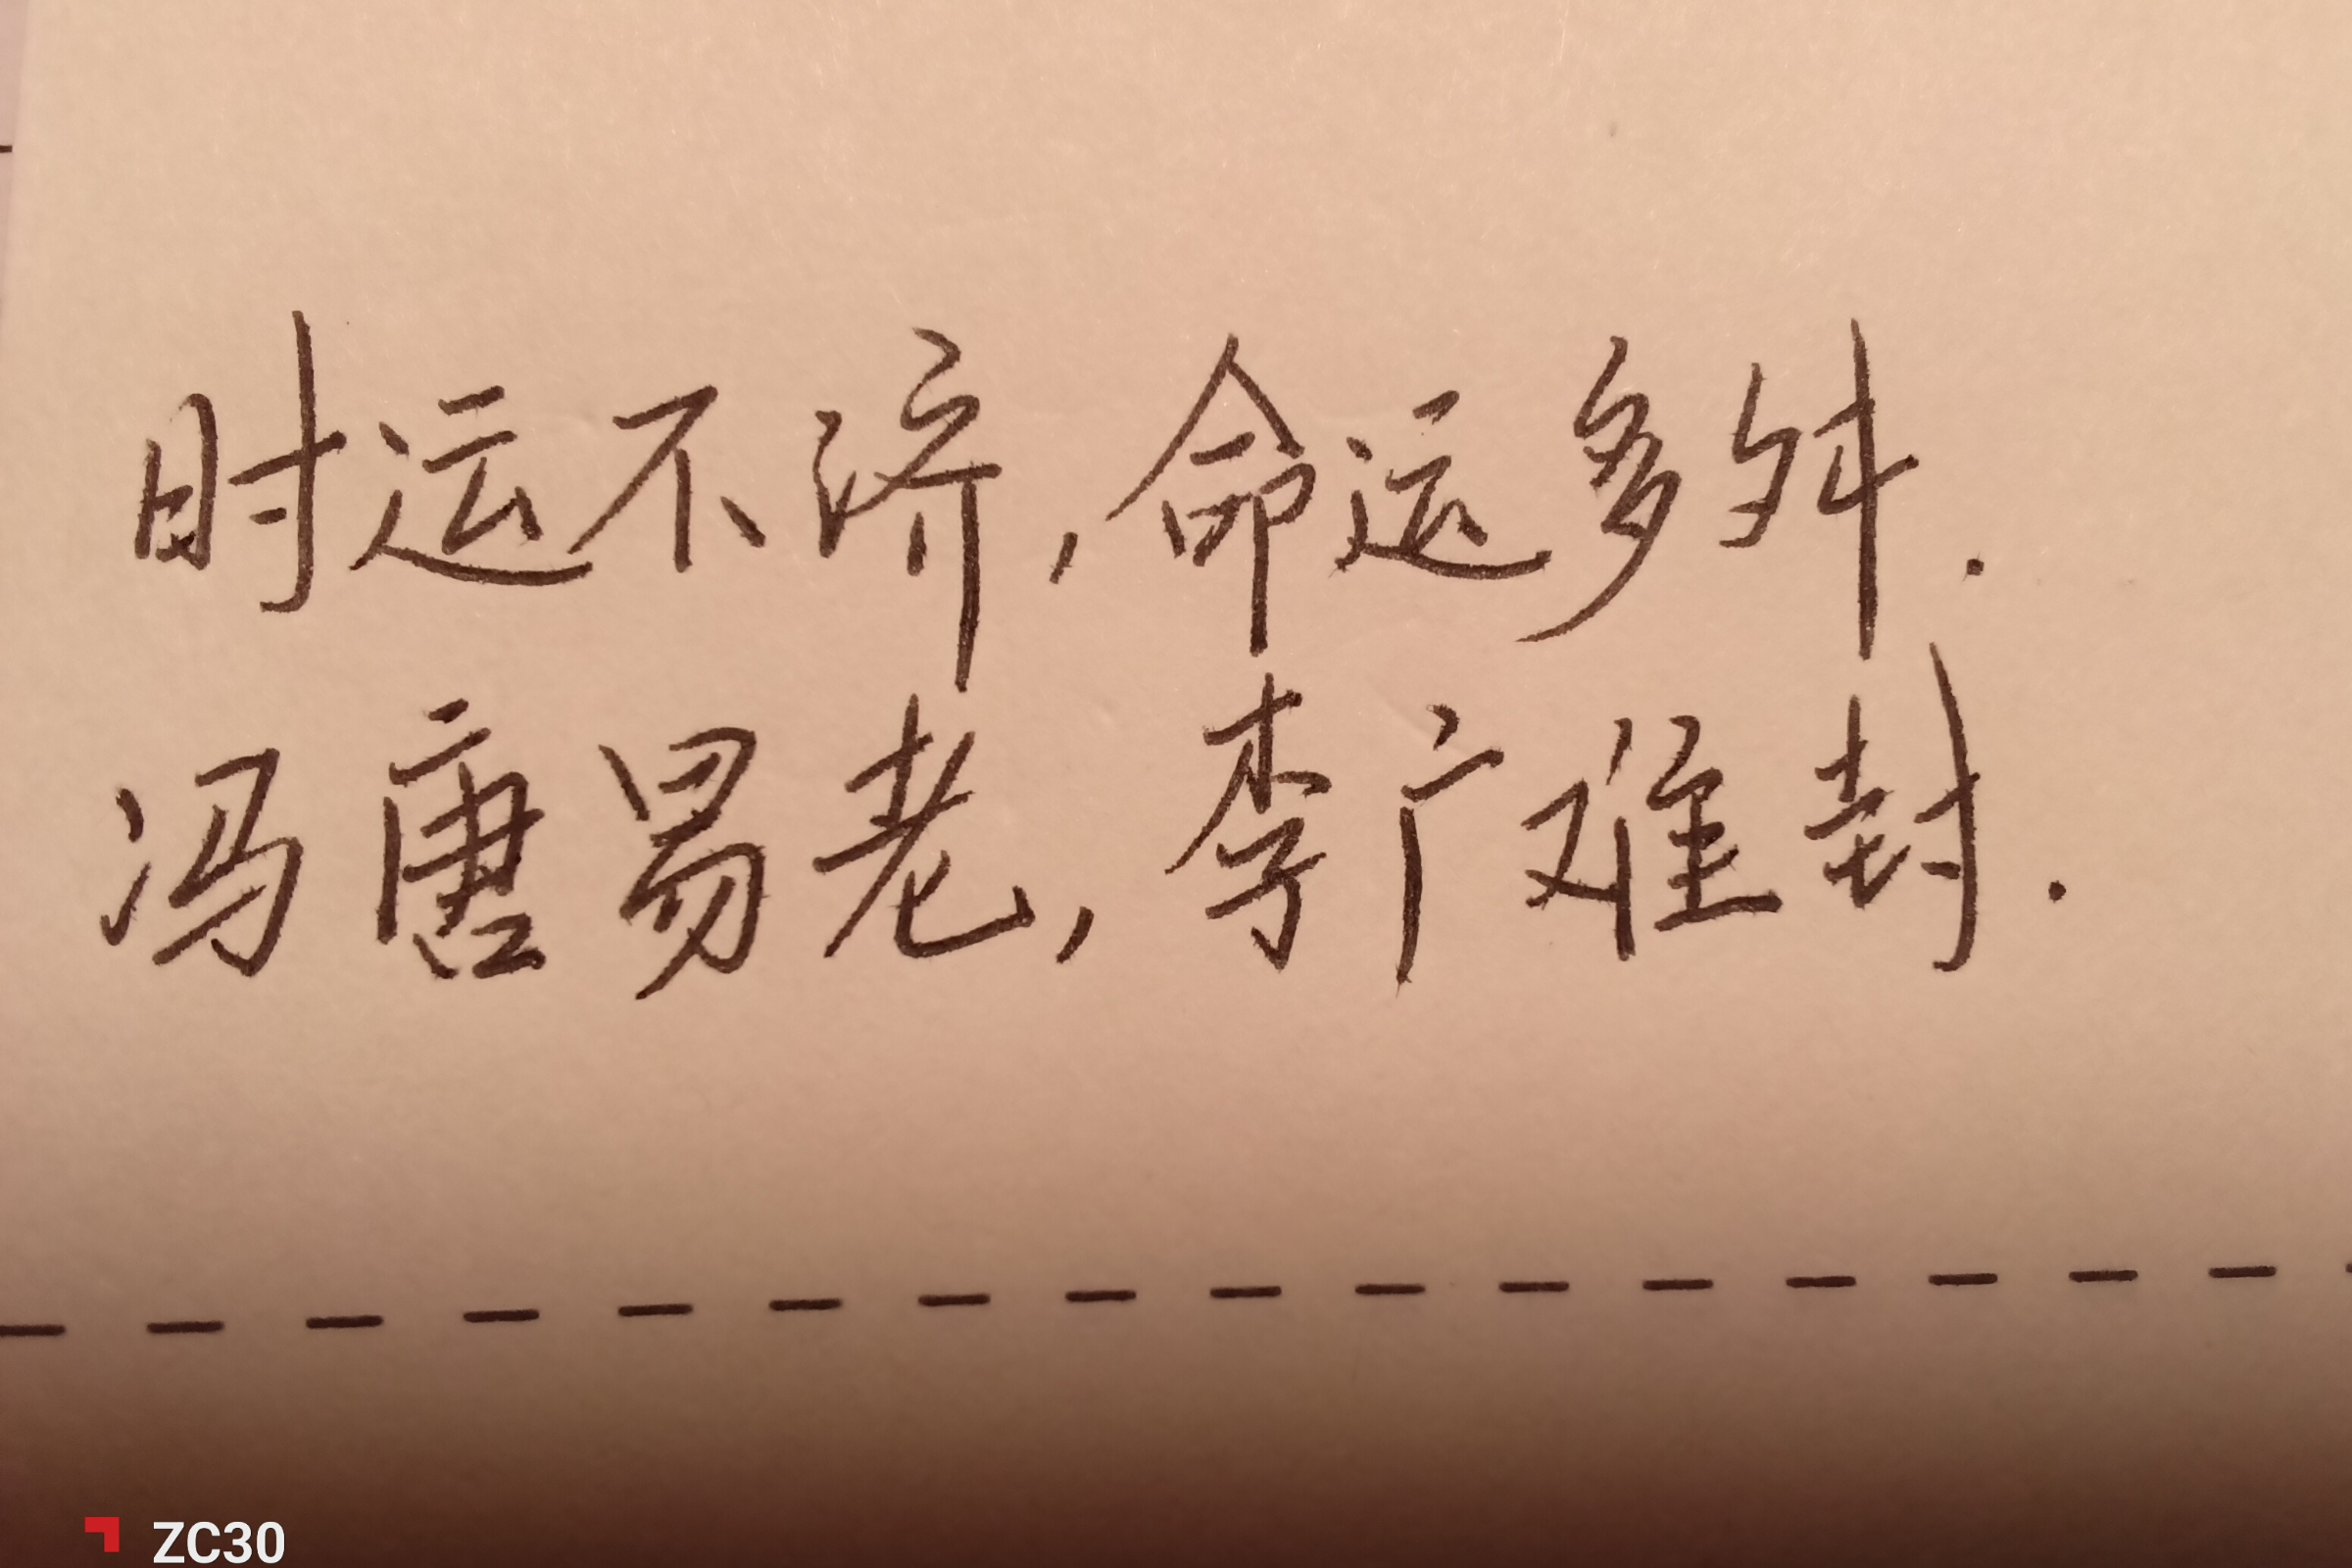 时运不济,命运多舛.
冯唐易老,李广难封.
ZC30